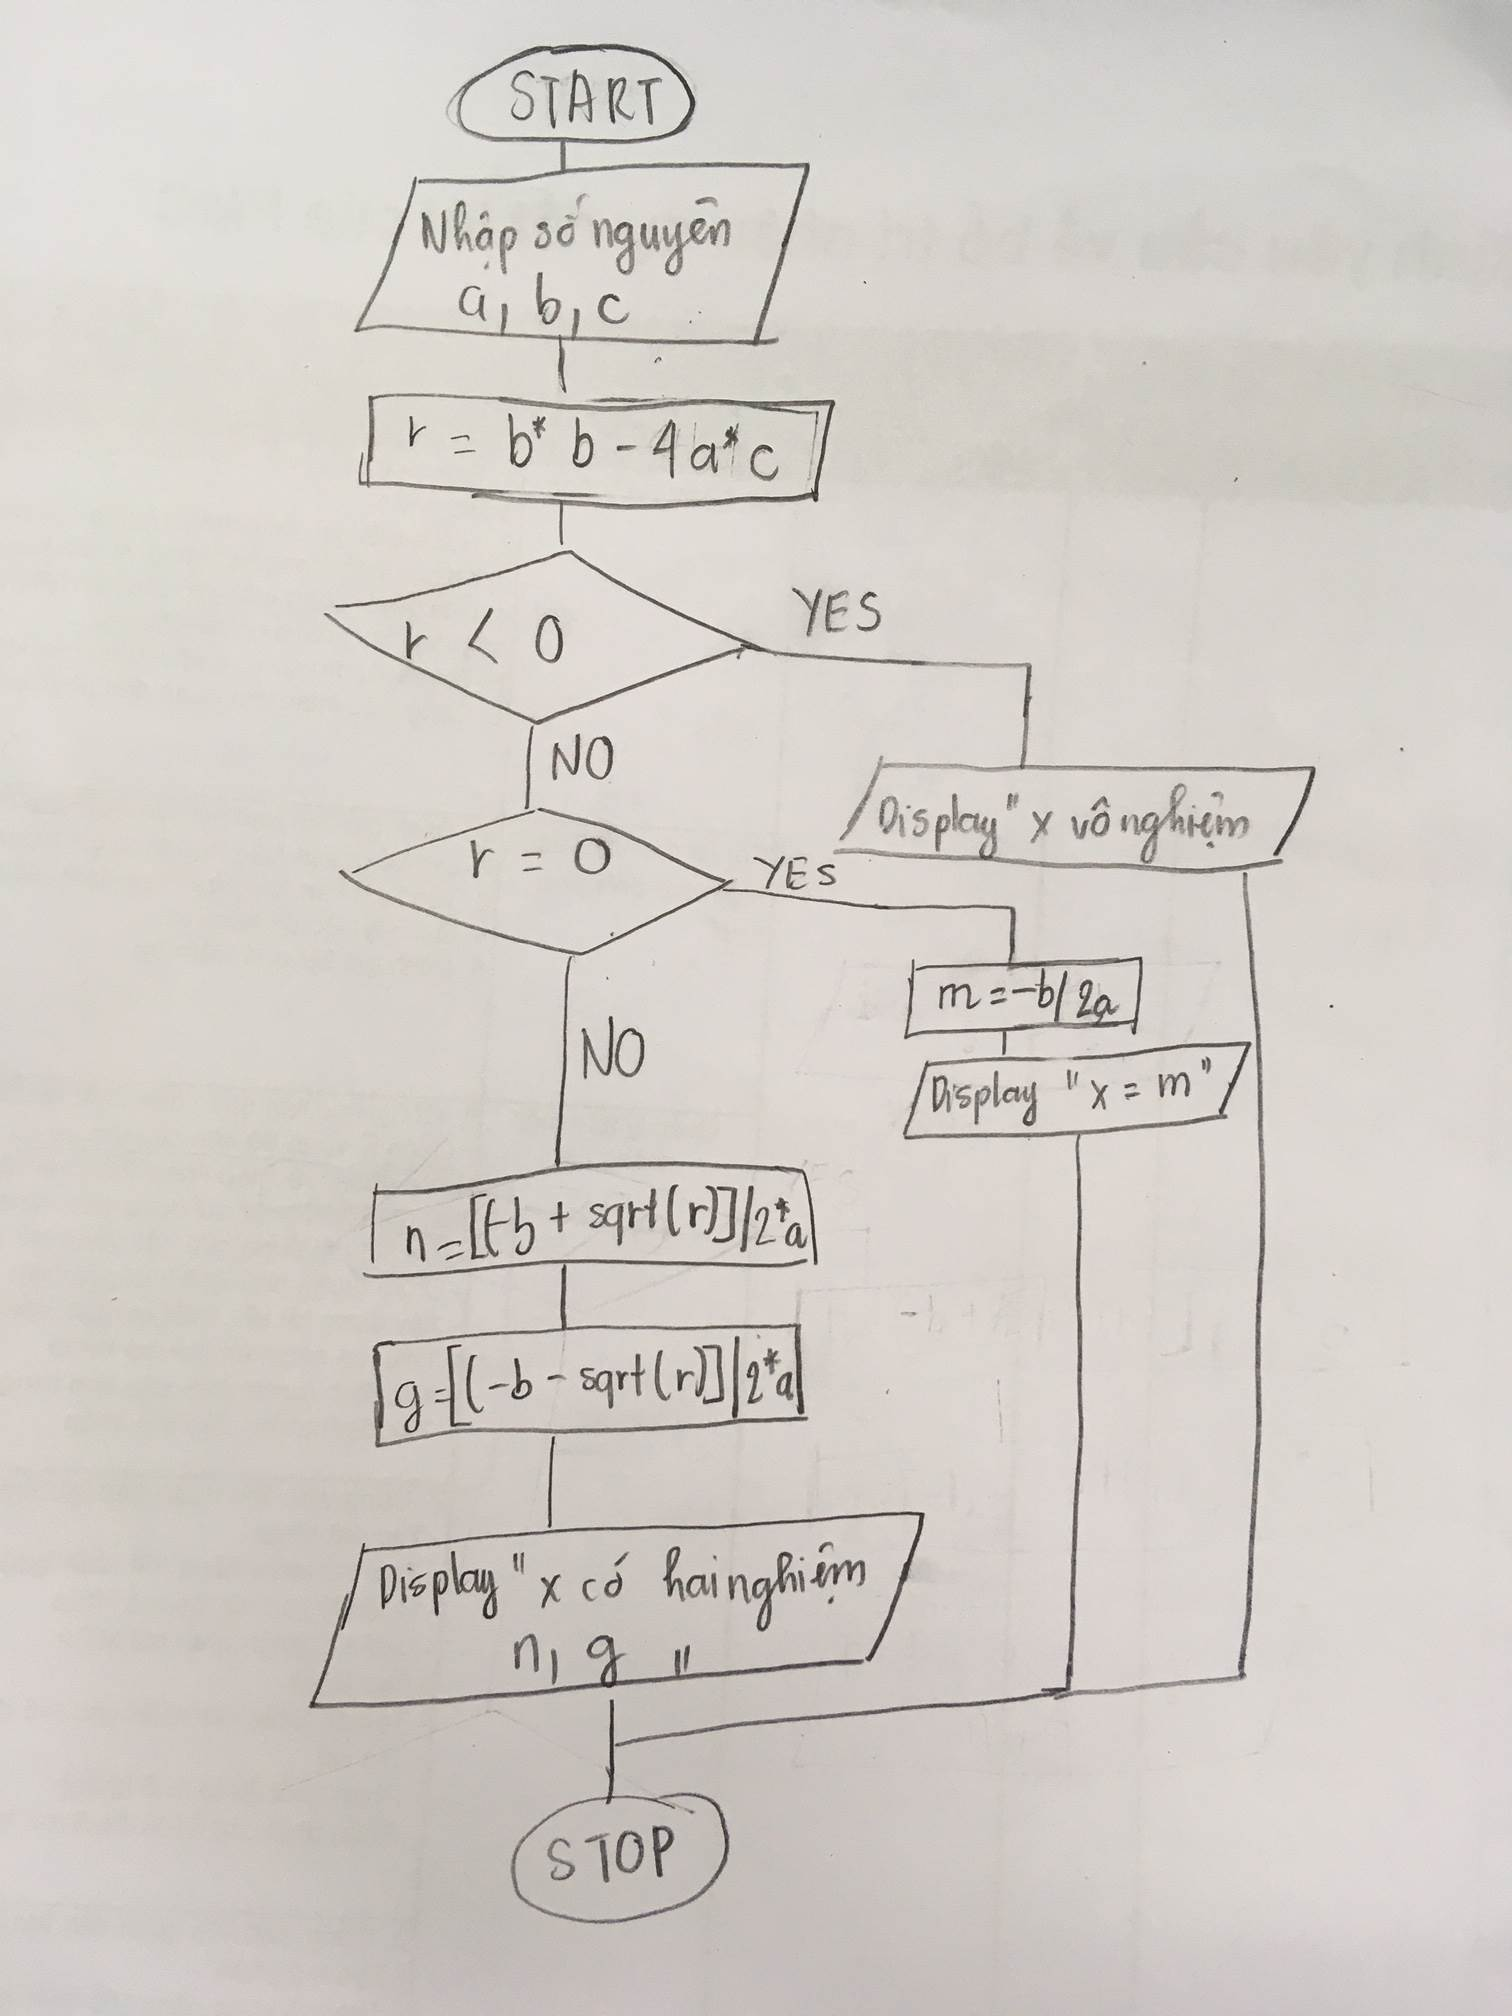 START
Nhập số nguyên
a, b, c
r = b* b - 4a*c
r < 0
YES
NO
Display "x vô nghiệm
r = 0
YES
m = -b/2a
NO
Display "x = m"
n = [(-b + sqrt(r)]/2*a
g = [(-b - sqrt(r)]/2*a
Display "x có hai nghiệm
n, g "
STOP